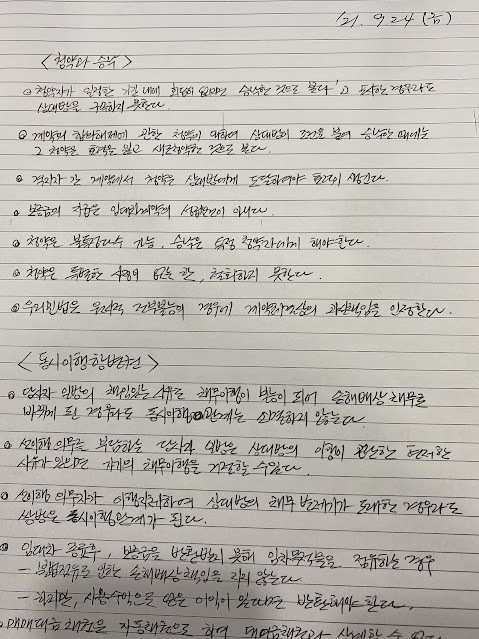 '21. 9. 24 (금)
<청약과 승낙>
청약자가 "일정한 기간 내에 회답이 없으면 승낙한 것으로 본다"고 표시한 경우라도
상대방을 구속하지 못한다.
계약의 합의해제에 관한 청약에 대하여 상대방이 조건을 붙여 승낙한 때에는
그 청약은 효력을 잃고 새로청약한 것으로 본다.
격지자 간 계약에서 청약은 상대방에게 도달하여야 효력이 생긴다.
보증금의 지급은 임대차계약의 성립요건이 아니다.
청약은 불특정다수 가능, 승낙은 특정 청약자에게 해야한다.
청약은 특별한 사정이 없는 한, 철회하지 못한다.
우리민법은 원시적 전부불능의 경우에 계약체결상의 과실책임을 인정한다.
<동시이행항변권>
당사자 일방의 책임있는 사유로 채무이행이 불능이 되어 손해배상 채무로
바뀌게 된 경우라도 동시이행관계는 소멸하지 않는다.
선이행 의무를 부담하는 당사자 일방은 상대방의 이행이 곤란한 현저한
사유가 있으면 자기의 채무이행을 거절할 수 있다.
선이행 의무자가 이행지체하여 상대방의 채무 변제기가 도래한 경우라도
쌍방은 동시이행관계가 된다.
임대차 종료후, 보증금을 반환받지 못해 임차목적물을 점유하는 경우
- 불법점유로 인한 손해배상책임을 지지 않는다.
- 하지만, 사용수익으로 얻은 이익이 있다면 반환해야 한다.
매매대금채권을 자동채권으로 하여 대여금채권과 상계할 수 없다